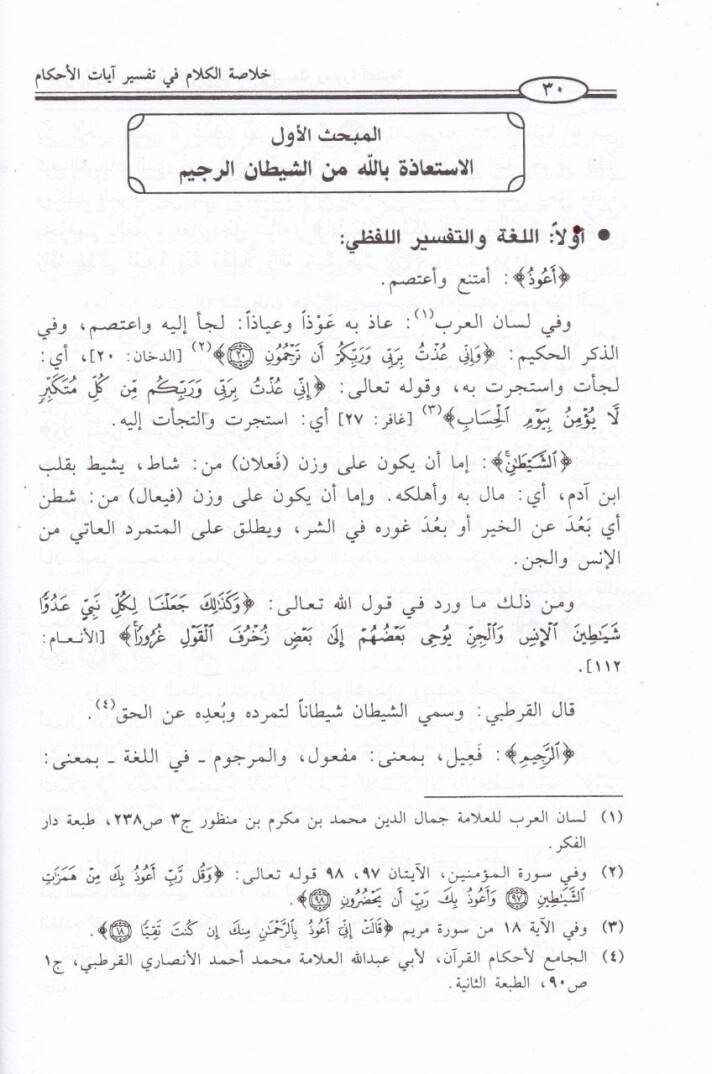 ٣٠
خلاصة الكلام في تفسير آيات الأحكام
المبحث الأول
الاستعاذة بالله من الشيطان الرجيم
● أولاً: اللغة والتفسير اللفظي:
﴿أَعُوذُ﴾: أمتنع وأعتصم.
وفي لسان العرب(١): عاذ به عَوْذاً وعياذاً: لجأ إليه واعتصم، وفي
الذكر الحكيم: ﴿وَإِنِّي عُذْتُ بِرَبِّي وَرَبِّكُمْ أَن تَرْجُمُونِ ۝٢٠﴾(٢) [الدخان: ٢٠]، أي:
لجأت واستجرت به، وقوله تعالى: ﴿إِنِّي عُذْتُ بِرَبِّي وَرَبِّكُم مِّن كُلِّ مُتَكَبِّرٍ
لَّا يُؤْمِنُ بِيَوْمِ ٱلْحِسَابِ﴾(٣) [غافر: ٢٧] أي: استجرت والتجأت إليه.
﴿ٱلشَّيْطَٰنِ﴾: إما أن يكون على وزن (فَعلان) من: شاط، يشيط بقلب
ابن آدم، أي: مال به وأهلكه. وإما أن يكون على وزن (فيعال) من: شطن
أي بَعُدَ عن الخير أو بعُدَ غوره في الشر، ويطلق على المتمرد العاتي من
الإنس والجن.
ومن ذلك ما ورد في قول الله تعالى: ﴿وَكَذَٰلِكَ جَعَلْنَا لِكُلِّ نَبِيٍّ عَدُوًّا
شَيَٰطِينَ ٱلْإِنسِ وَٱلْجِنِّ يُوحِى بَعْضُهُمْ إِلَىٰ بَعْضٍ زُخْرُفَ ٱلْقَوْلِ غُرُورًا﴾ [الأنعام:
١١٢].
قال القرطبي: وسمي الشيطان شيطاناً لتمرده وبُعدِه عن الحق(٤).
﴿ٱلرَّجِيمِ﴾: فَعِيل، بمعنى: مفعول، والمرجوم ـ في اللغة ـ بمعنى:
(١) لسان العرب للعلامة جمال الدين محمد بن مكرم بن منظور ج٣ ص٢٣٨، طبعة دار
الفكر.
(٢) وفي سورة المؤمنين، الآيتان ٩٧، ٩٨ قوله تعالى: ﴿وَقُل رَّبِّ أَعُوذُ بِكَ مِنْ هَمَزَٰتِ
ٱلشَّيَٰطِينِ ۝٩٧ وَأَعُوذُ بِكَ رَبِّ أَن يَحْضُرُونِ ۝٩٨﴾.
(٣) وفي الآية ١٨ من سورة مريم ﴿قَالَتْ إِنِّي أَعُوذُ بِٱلرَّحْمَٰنِ مِنكَ إِن كُنتَ تَقِيًّا ۝١٨﴾.
(٤) الجامع لأحكام القرآن، لأبي عبدالله العلامة محمد أحمد الأنصاري القرطبي، ج١
ص٩٠، الطبعة الثانية.